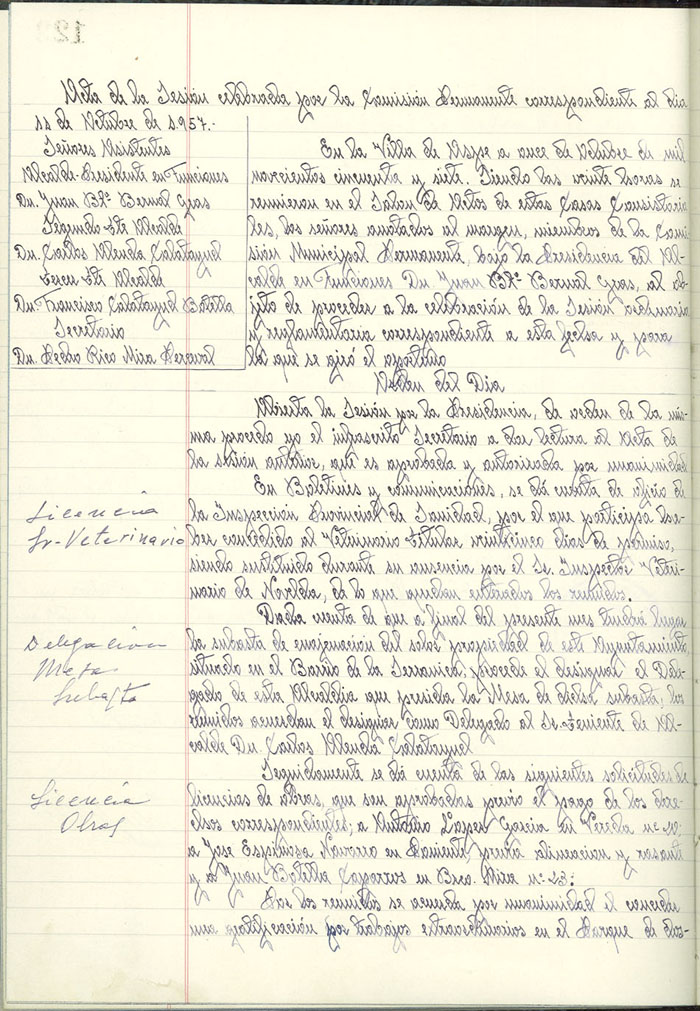 Acta de la Sesión celebrada por la Comisión Permanente correspondiente al día
11 de Octubre de 1.957.-
Señores Asistentes
Alcalde-Presidente en Funciones
Dn. Juan Btª Bernal Gras
Segundo Tte Alcalde
Dn. Carlos Alenda Calatayud
Tercer Tte Alcalde
Dn. Francisco Calatayud Botella
Secretario
Dn. Pedro Rico Mira Perceval
En la Villa de Aspe a once de Octubre de mil
novecientos cincuenta y siete. Siendo las veinte horas se
reunieron en el Salon de Actos de estas Casas Consistoria-
les, los señores anotados al margen, miembros de la Comi-
sión Municipal Permanente, bajo la Presidencia del Al-
calde en Funciones Dn. Juan Btª Bernal Gras, al ob-
jeto de proceder a la celebración de la Sesión ordinaria
y reglamentaria correspondiente a esta fecha y para
la que se giró el oportuno
Orden del Dia
Abierta la Sesión por la Presidencia, de orden de la mis-
ma procedo yo el infrascrito Secretario a dar lectura al Acta de
la sesión anterior, que es aprobada y autorizada por unanimidad
En Boletines y comunicaciones, se dá cuenta de oficio de
Licencia
Sr-Veterinario
la Inspección Provincial de Sanidad, por el que participa ha-
ber concedido al Veterinario Titular veinticinco dias de permiso,
siendo sustituido durante su ausencia por el Sr. Inspector Veteri-
nario de Novelda, de lo que quedan enterados los reunidos.
Dada cuenta de que a final del presente mes tendrá lugar
Delegacion
Mesa
Subasta
la subasta de enajenación del solar propiedad de este Ayuntamiento,
situado en el Barrio de la Serranica, procede el designar el Dele-
gado de esta Alcaldia que presida la Mesa de dicha subasta, los
reunidos acuerdan el designar como Delegado al Sr. Teniente de Al-
calde Dn. Carlos Alenda Calatayud
Seguidamente se dá cuenta de las siguientes solicitudes de
Licencia
Obras
licencias de obras, que son aprobadas previo el pago de los dere-
chos correspondientes; a Antonio Lopez Garcia en Vereda nº 10;
a Jose Espinosa Navarro en Poniente, previa alineacion y rasante
y a Juan Botella Caparros en Bco. Mira nº 23:
Por los reunidos se acuerda por unanimidad el conceder
una gratificación por trabajos extraordinarios en el Parque de dos-